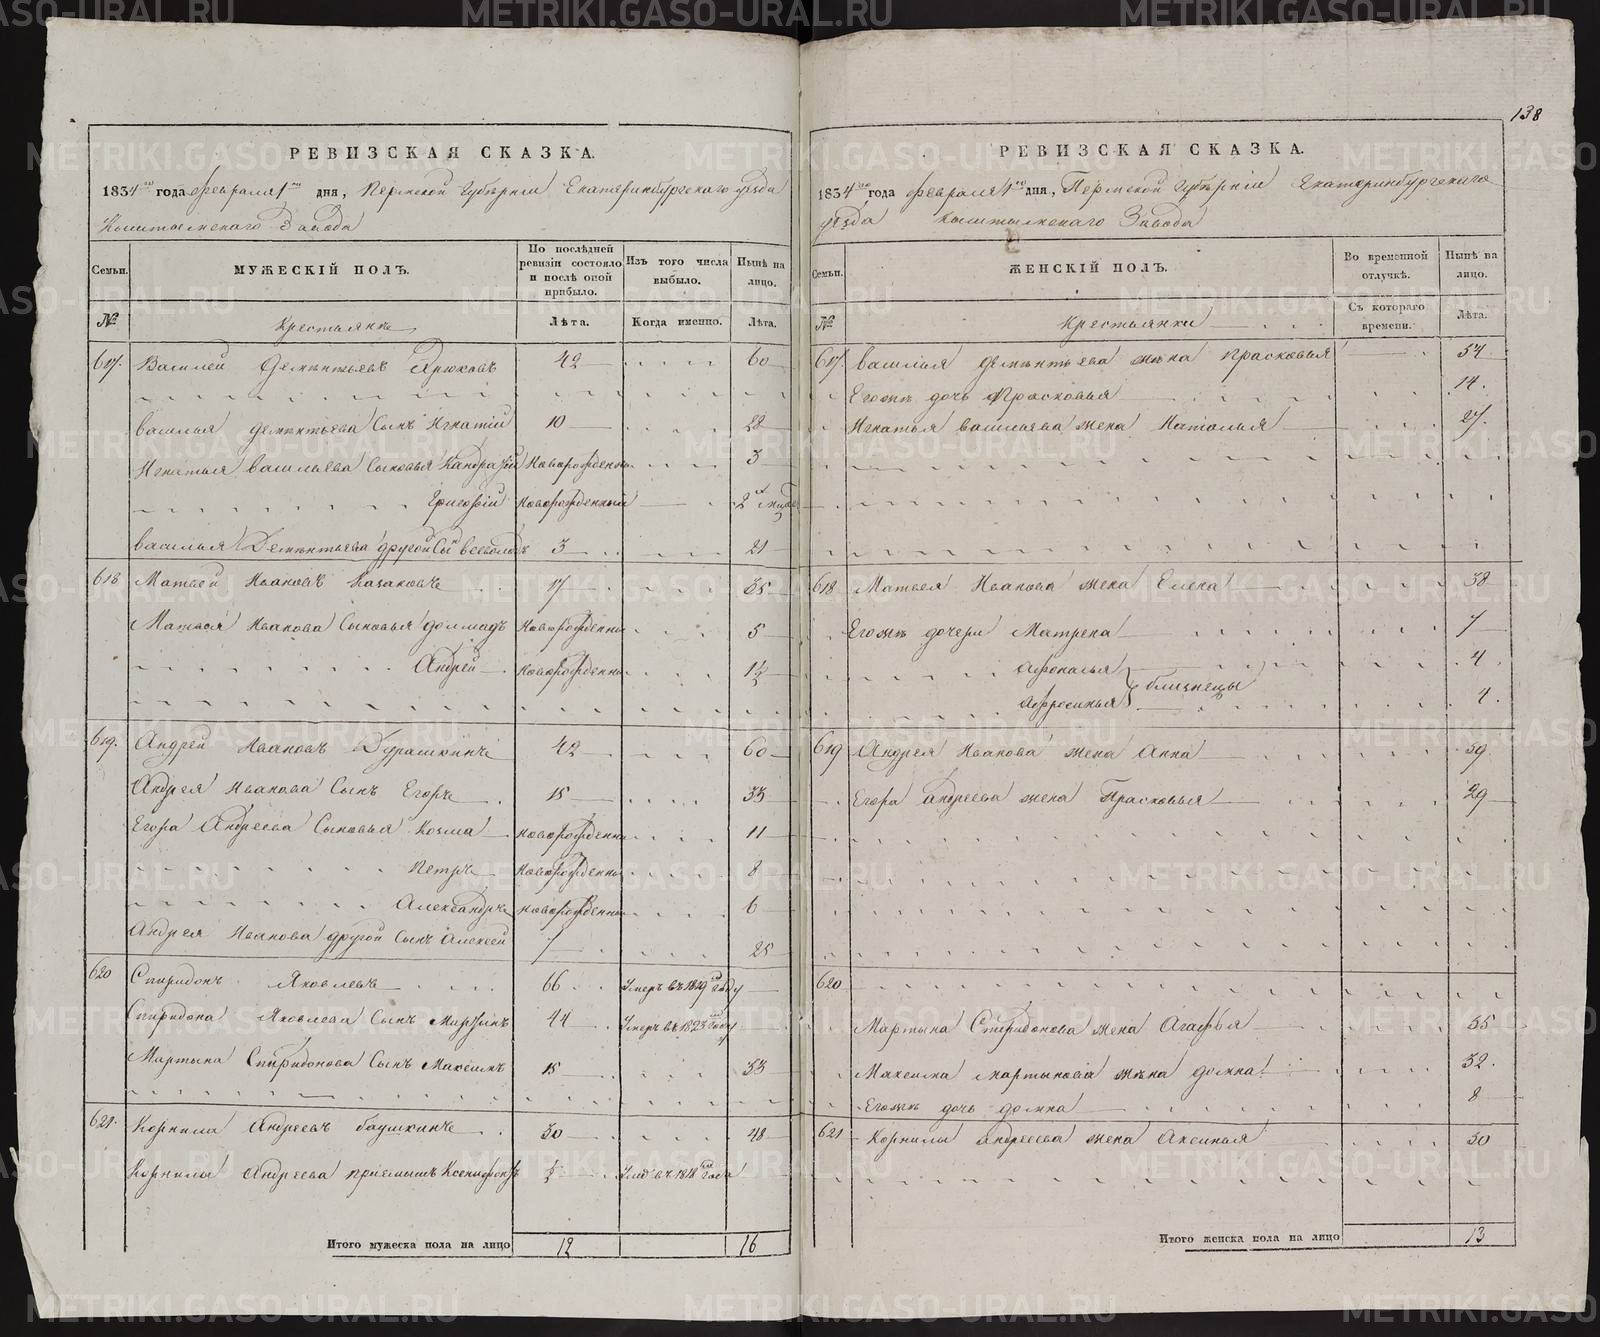 138
РЕВИЗСКАЯ СКАЗКА.
1834 года февраля 1 дня, Пермской Губернии Екатеринбургского уезда
Кыштымского Завода
Семьи. МУЖЕСКІЙ ПОЛЪ. По послѣдней ревизіи состояло и послѣ оной прибыло. Изъ того числа выбыло. Нынѣ на лицо.
№ Крестьяне Лѣта. Когда именно. Лѣта.
617. Василей Дементьевъ 42 60
Василья Дементьева Сынъ Игнатій 10 28
Игнатья Васильева Сыновья Новорожденны 3
Григорій Новорожденный 2
Василья Дементьева другой Сынъ 3 21
618 Матвей Ивановъ Казаковъ 17 35
Матвея Иванова Сыновья Новорожденны 5
Андрей Новорожденны 1½
619. Андрей Ивановъ Дурашкинъ 42 60
Андрея Иванова Сынъ Егоръ 15 33
Егора Андреева Сыновья Козма Новорожденны 11
Петръ Новорожденны 8
Александръ Новорожденны 6
Андрея Иванова другой Сынъ Алексей 7 25
620 Спиридонъ Яковлевъ 66 Умеръ въ 1829 году
Спиридона Яковлева Сынъ Мартынъ 44 Умеръ въ 1823 году
Мартына Спиридонова Сынъ Максимъ 15 33
621. Корнила Андреевъ 30 48
Корнилы Андреева приемышъ Ксенофонтъ ½ въ 1818 года
Итого мужеска пола на лицо 12 16
РЕВИЗСКАЯ СКАЗКА.
1834 года февраля 1 дня, Пермской Губерніи Екатеринбургского
уезда Кыштымского Завода
Семьи. ЖЕНСКІЙ ПОЛЪ. Во временной отлучкѣ. Нынѣ на лицо.
№ Крестьянки Съ котораго времени. Лѣта.
617. Василья Дементьева жена Прасковья 57
Егожъ дочь Прасковья 14.
Игнатья Васильева жена Наталья 27.
618 Матвея Иванова жена Елена 38
Егожъ дочери Матрена 7
Афонасья 4
Афросинья близнецы 4
619 Андрея Иванова жена Анна 59
Егора Андреева жена Прасковья 29
620
Мартына Спиридонова жена Агафья 55
Максима Мартынова жена Домна 32.
Егожъ дочь Домна 8
621 Корнилы Андреева жена Аксинья 50
Итого женска пола на лицо 13
METRIKI.GASO-URAL.RU